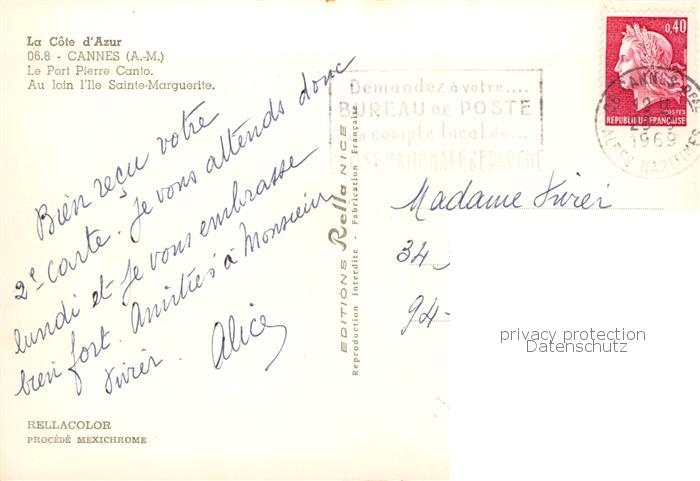 La Côte d'Azur
06.8 - CANNES (A.-M.)
Le Port Pierre Canto.
Au loin l'Ile Sainte-Marguerite.
Bien reçu votre
2e carte. Je vous attends donc
lundi et je vous embrasse
bien fort. Amitiés à Monsieur
Vivier. Alice
RELLACOLOR
PROCÉDÉ MEXICHROME
EDITIONS Rella NICE
Reproduction Interdite - Fabrication Française
Demandez à votre....
BUREAU DE POSTE
compte local de...
NATIONALE D'EPARGNE
0,40
POSTES
REPUBLIQUE FRANÇAISE
CANNES
1969
ALPES MARITIMES
Madame Vivier
34
94-
privacy protection
Datenschutz